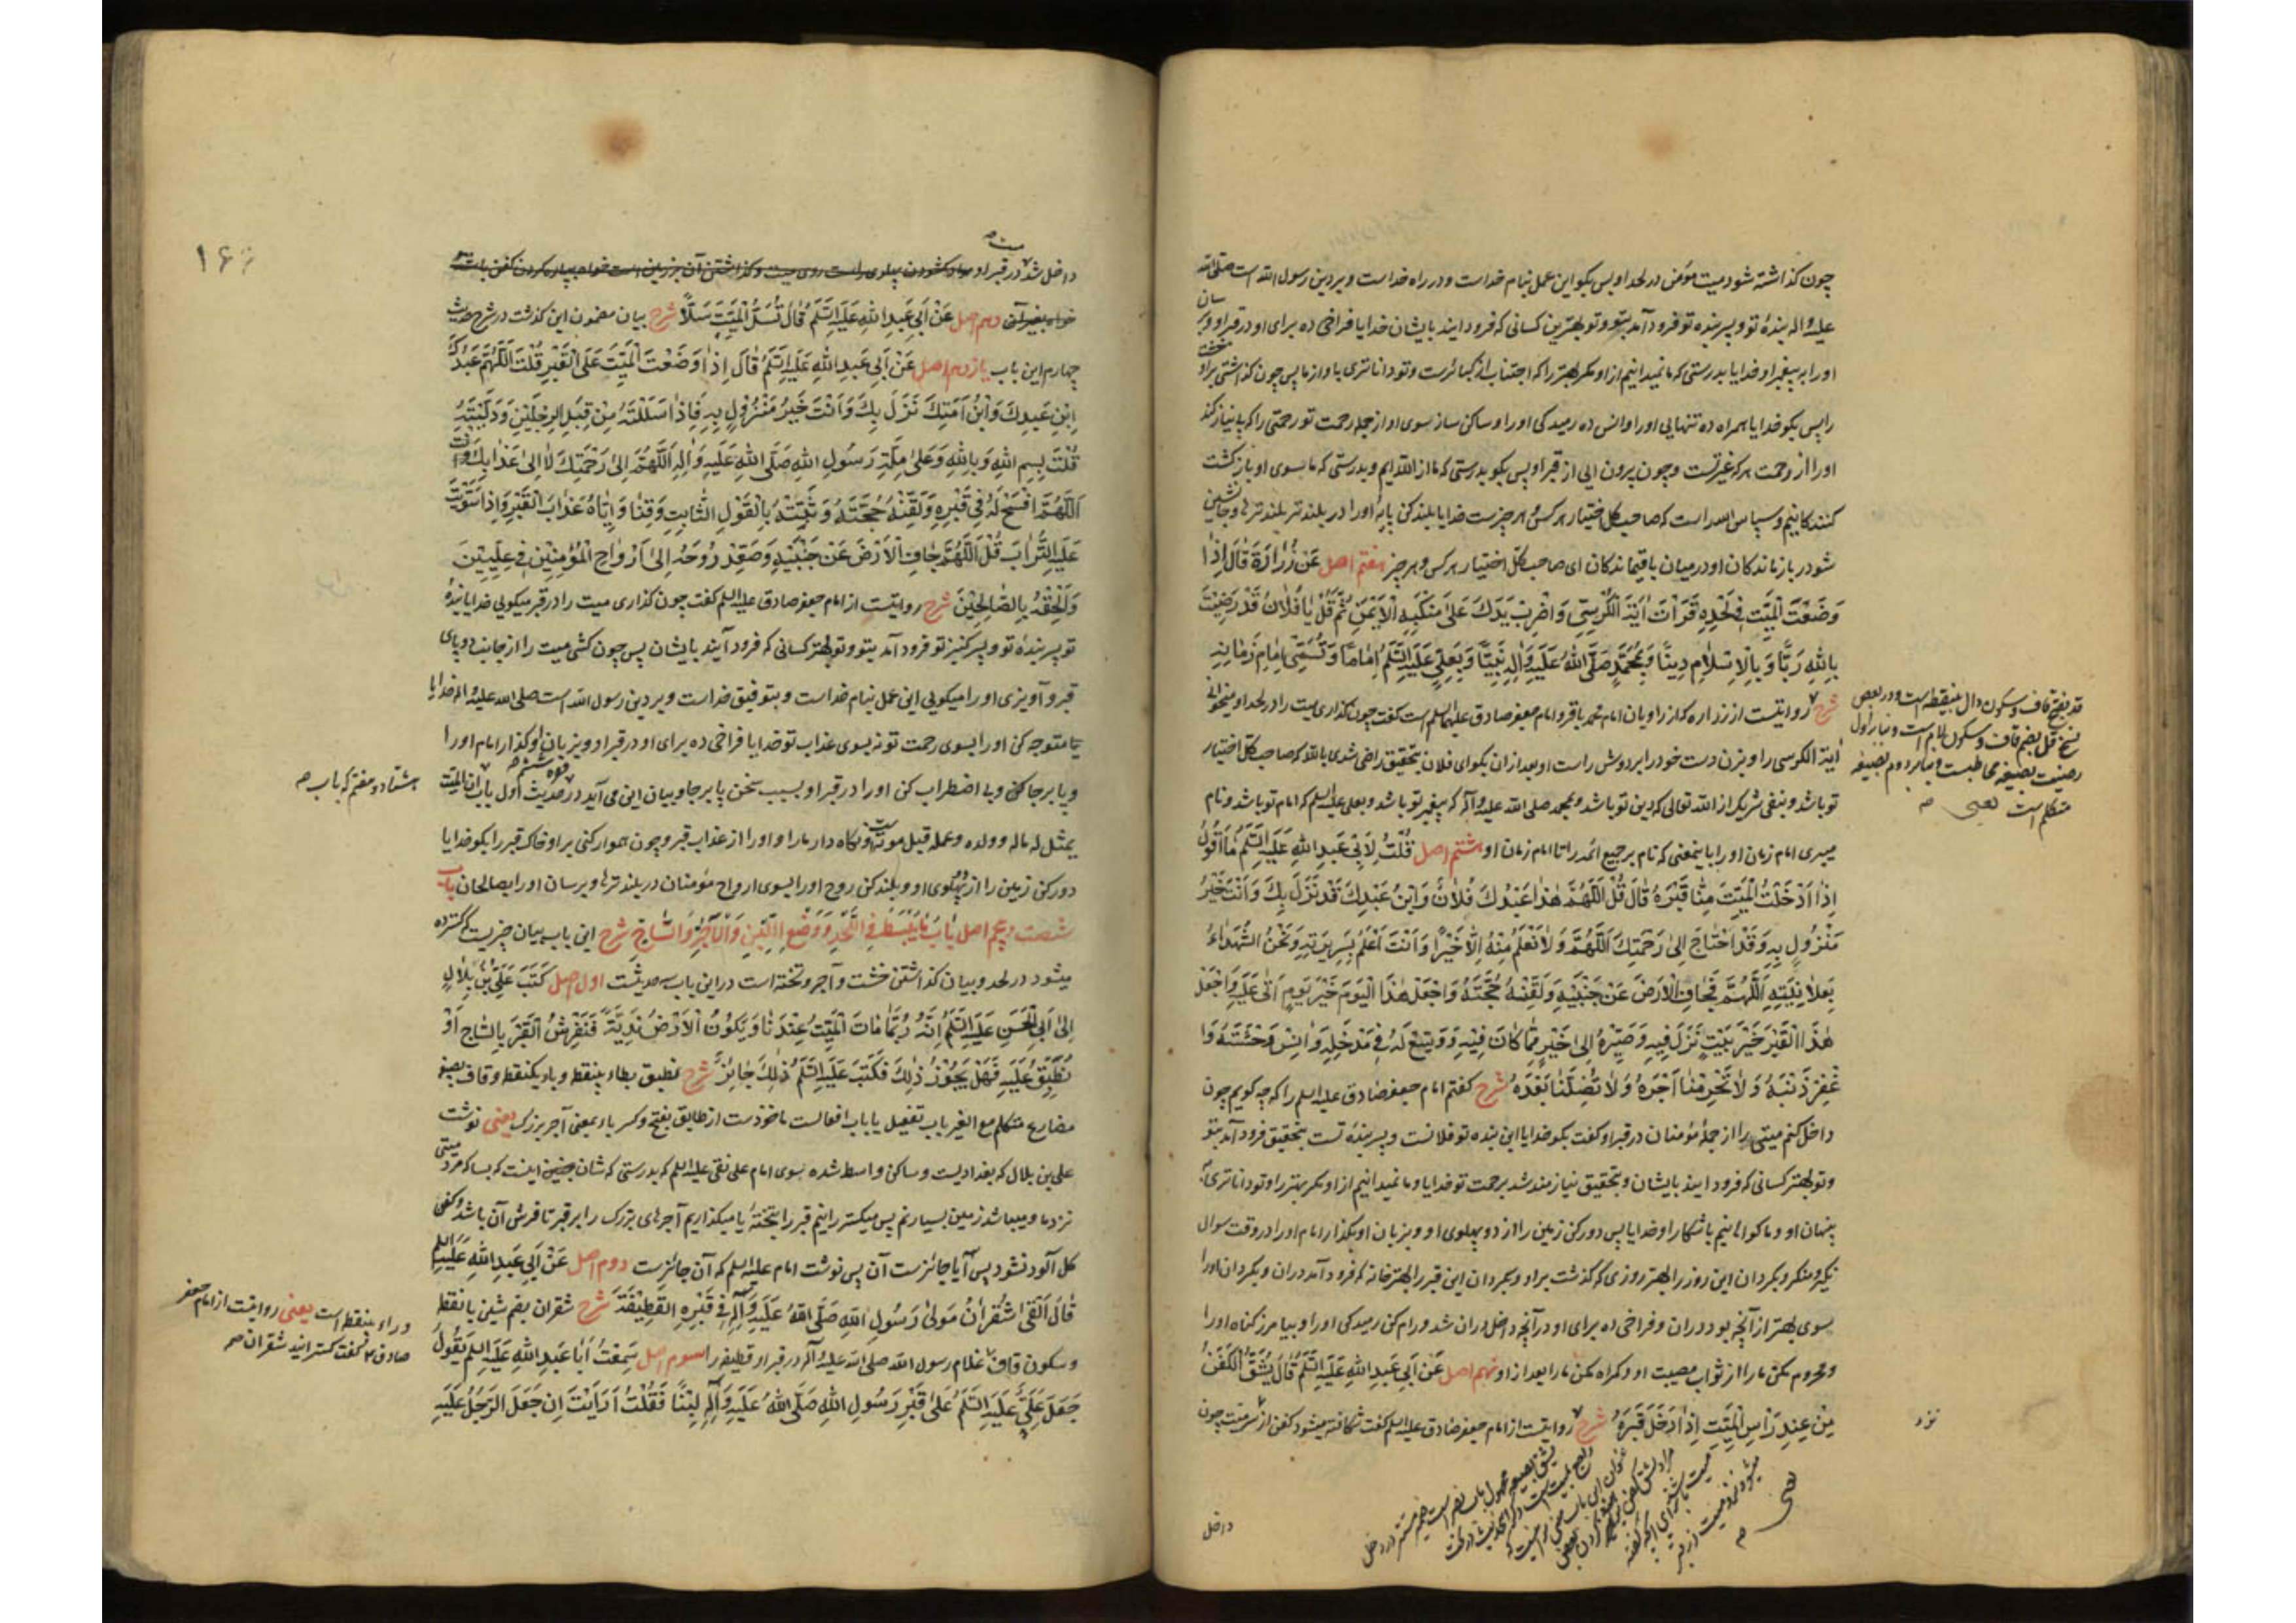 چون گذاشته شود میت مؤمن در لحد او پس بگو این عمل بنام خداست و در راه خداست و بر دین رسول الله است صلّی الله
علیه و اله بندهٔ تو و پسر بنده تو فرود آمد بتو و تو بهترین کسانی که فرود ایند بایشان خدایا فراخی ده برای او در قبر او و برسان
او را به پیغمبر او خدایا بدرستی که ما نمیدانیم از او مگر بهتر را که اجتناب از کبائرست و تو داناتری باو از ما پس چون گذاشتی بر او خشت
را پس بگو خدایا همراه ده تنهایی او را و انس ده رمیدگی او را و ساکن ساز بسوی او از جمله رحمت تو رحمتی را که بی نیاز کند
او را از رحمت هر که غیر تست و چون بیرون ایی از قبر او پس بگو بدرستی که ما از الله ایم و بدرستی که ما بسوی او بازگشت
کنندگانیم و سپاس الله را است که صاحب کل اختیار هر کس و هر چیز ست خدایا بلند کن پایهٔ او را در بلندتر بلندترها و جانشین
شو در بازماندگان او در میان باقیماندگان ای صاحب کل اختیار هر کس و هر چیز هفتم اصل عَنْ زُرَارَةَ قَالَ اِذَا
وَضَعْتَ الْمَيِّتَ فِي لَحْدِهِ قَرَأْتَ اٰيَةَ الْكُرْسِيِّ وَاضْرِبْ يَدَكَ عَلَى مَنْكِبِهِ الْأَيْمَنِ ثُمَّ قُلْ يَا فُلَانُ قَدْ رَضِيْتَ
بِاللهِ رَبًّا وَبِالْاِسْلَامِ دِينًا وَبِمُحَمَّدٍ صَلَّى اللهُ عَلَيْهِ وَاٰلِهِ نَبِيًّا وَبِعَلِيٍّ عَلَيْهِ السَّلَمُ اِمَامًا وَتُسَمِّي اِمَامَ زَمَانِهِ
شرح روایتست از زراره که از راویان امام محمد باقر و امام جعفر صادق علیهما السلم است گفت چون گذاری میت را در لحد او میخوانی
آیة الکرسی را و بزن دست خود را بر دوش راست او بعد از ان بگو ای فلان بتحقیق راضی شدی بالله که صاحب کل اختیار
تو باشد و بنفی شریک از الله تعالی که دین تو باشد و بمحمد صلی الله علیه و آله که پیغمبر تو باشد و بعلی علیه السلم که امام تو باشد و نام
میبری امام زمان او را باینمعنی که نام بر جمیع ائمه را تا امام زمان او هشتم اصل قُلْتُ لِاَبِي عَبْدِ اللهِ عَلَيْهِ السَّلَمُ مَا اَقُولُ
اِذَا اَدْخَلْتُ الْمَيِّتَ مِنَّا قَبْرَهُ قَالَ قُلْ اَللّٰهُمَّ هٰذَا عَبْدُكَ فُلَانٌ وَابْنُ عَبْدِكَ قَدْ نَزَلَ بِكَ وَاَنْتَ خَيْرُ
مَنْزُولٍ بِهِ وَقَدْ احْتَاجَ اِلَى رَحْمَتِكَ اَللّٰهُمَّ وَلَا نَعْلَمُ مِنْهُ اِلَّا خَيْرًا وَاَنْتَ اَعْلَمُ بِسَرِيرَتِهِ وَنَحْنُ الشُّهَدَاءُ
بِعَلَانِيَتِهِ اَللّٰهُمَّ فَجَافِ الْاَرْضَ عَنْ جَنْبَيْهِ وَلَقِّنْهُ حُجَّتَهُ وَاجْعَلْ هٰذَا الْيَوْمَ خَيْرَ يَوْمٍ اَتَى عَلَيْهِ وَاجْعَلْ
هٰذَا الْقَبْرَ خَيْرَ بَيْتٍ نَزَلَ فِيهِ وَصَيِّرْهُ اِلَى خَيْرٍ مِمَّا كَانَ فِيْهِ وَوَسِّعْ لَهُ فِي مَدْخَلِهِ وَاٰنِسْ وَحْشَتَهُ وَا
غْفِرْ ذَنْبَهُ وَلَا تَحْرِمْنَا اَجْرَهُ وَلَا تُضِلَّنَا بَعْدَهُ شرح گفتم امام جعفر صادق علیه السلم را که چه گویم چون
داخل کنم میتی را از جملهٔ مؤمنان در قبر او گفت بگو خدایا این بنده تو فلانست و پسر بندهٔ تست بتحقیق فرود آمد بتو
و تو بهتر کسانی که فرود ایند بایشان و بتحقیق نیازمند شد برحمت تو خدایا و ما نمیدانیم از او مگر بهتر را و تو داناتری به
پنهان او و ما گواهانیم باشکار او خدایا پس دور کن زمین را از دو پهلوی او و بزبان او بگذار امام او را در وقت سوال
نکیر و منکر و بگردان این روز را بهتر روزی که گذشت بر او و بگردان این قبر را بهتر خانه که فرود آمد دران و بگردان او را
بسوی بهتر از آنچه بود دران و فراخی ده برای او در آنچه داخل دران شد و رام کن رمیدگی او را و بیامرز گناه او را
و محروم مکن ما را از ثواب مصیبت او و گمراه مکن ما را بعد از او نهم اصل عَنْ اَبِي عَبْدِ اللهِ عَلَيْهِ السَّلَمُ قَالَ يُشَقُّ الْكَفَنُ
مِنْ عِنْدِ رَأْسِ الْمَيِّتِ اِذَا اُدْخِلَ قَبْرَهُ شرح روایتست از امام جعفر صادق علیه السلم گفت شکافته میشود کفن از سر میت چون
داخل
قد بفتح قاف و سکون دال بینقطه است و در بعض
نسخ قل بضم قاف و سکون لام است و بنابر اول
رضیت بصیغه مخاطبست و بنابر دوم بصیغه
متکلم است یعنی
نزد
۱۶
داخل شد در قبر او
دهم اصل عَنْ اَبِي عَبْدِ اللهِ عَلَيْهِ السَّلَمُ قَالَ تَسُلُّ الْمَيِّتَ سَلًّا شرح بیان مضمون این گذشت در شرح حدیث
چهارم این باب یازدهم اصل عَنْ اَبِي عَبْدِ اللهِ عَلَيْهِ السَّلَمُ قَالَ اِذَا وَضَعْتَ الْمَيِّتَ عَلَى الْقَبْرِ قُلْتَ اَللّٰهُمَّ عَبْدُكَ
اِبْنُ عَبْدِكَ وَابْنُ اَمَتِكَ نَزَلَ بِكَ وَاَنْتَ خَيْرُ مَنْزُولٍ بِهِ فَاِذَا سَلَلْتَهُ مِنْ قِبَلِ الرِّجْلَيْنِ وَدَلَّيْتَهُ
قُلْتَ بِسْمِ اللهِ وَبِاللهِ وَعَلَى مِلَّةِ رَسُولِ اللهِ صَلَّى اللهُ عَلَيْهِ وَاٰلِهِ اَللّٰهُمَّ اِلَى رَحْمَتِكَ لَا اِلَى عَذَابِكَ
اَللّٰهُمَّ افْسَحْ لَهُ فِي قَبْرِهِ وَلَقِّنْهُ حُجَّتَهُ وَثَبِّتْهُ بِالْقَوْلِ الثَّابِتِ وَقِنَا وَاِيَّاهُ عَذَابَ الْقَبْرِ وَاِذَا سَوَّيْتَ
عَلَيْهِ التُّرَابَ قُلْ اَللّٰهُمَّ جَافِ الْاَرْضَ عَنْ جَنْبَيْهِ وَصَعِّدْ رُوحَهُ اِلَى اَرْوَاحِ الْمُؤْمِنِيْنَ فِي عِلِّيِّيْنَ
وَاَلْحِقْهُ بِالصَّالِحِيْنَ شرح روایتست از امام جعفر صادق علیه السلم گفت چون گذاری میت را در قبر میگویی خدایا بندهٔ
تو پسر بندهٔ تو و پسر کنیز تو فرود آمد بتو و تو بهتر کسانی که فرود آیند بایشان پس چون کشی میت را از جانب دو پای
قبر و آویزی او را میگویی این عمل بنام خداست و بتوفیق خداست و بر دین رسول الله است صلی الله علیه و اله خدایا
متوجه کن او را بسوی رحمت تو نه بسوی عذاب تو خدایا فراخی ده برای او در قبر او و بزبان او گذار امام او را
و پابرجا کن و بی اضطراب کن او را در قبر او بسبب سخن پابرجا و بیان این می آید در حدیث اول باب ان المیت
یمثل له ماله و ولده و عمله قبل موته و نگاه دار ما را و او را از عذاب قبر و چون هموار کنی بر او خاک قبر را بگو خدایا
دور کن زمین را از دو پهلوی او و بلند کن روح او را بسوی ارواح مؤمنان در بلندترها و برسان او را بصالحان باب
شصت و پنجم اصل بَابُ مَا يُبْسَطُ فِي اللَّحْدِ وَوَضْعِ اللَّبِنِ وَالْآجُرِّ وَالسَّاجِ شرح این باب بیان چیزیست که گسترده
میشود در لحد و بیان گذاشتن خشت و آجر و تخته است در این باب سه حدیثست اول اصل كَتَبَ عَلِيُّ بْنُ بِلَالٍ
اِلَى اَبِي الْحَسَنِ عَلَيْهِ السَّلَمُ اَنَّهُ رُبَّمَا مَاتَ الْمَيِّتُ عِنْدَنَا وَتَكُونُ الْاَرْضُ نَدِيَّةً فَنَفْرِشُ الْقَبْرَ بِالسَّاجِ اَوْ
نُطَبِّقُ عَلَيْهِ فَهَلْ يَجُوزُ ذٰلِكَ فَكَتَبَ عَلَيْهِ السَّلَمُ ذٰلِكَ جَائِزٌ شرح نطبق بطاء بینقطه و باء یکنقطه و قاف بصیغهٔ
مضارع متکلم مع الغیر باب تفعیل یا باب افعالست ماخوذست از طابق بفتح و کسر باء بمعنی آجر بزرگ یعنی نوشت
علی بن بلال که بغدادیست و ساکن واسط شده بسوی امام علی نقی علیه السلم که بدرستی که شان چنین اینست که بسا که مرد میتی
نزد ما و میباشد زمین بسیار نم پس میگسترانیم قبر را بتخته یا میگذاریم آجرهای بزرگ را بر قبر تا فرش آن باشد و کفن
گل آلود نشود پس آیا جائزست آن پس نوشت امام علیه السلم که آن جائزست دوم اصل عَنْ اَبِي عَبْدِ اللهِ عَلَيْهِ السَّلَمُ
قَالَ اَلْقَى شُقْرَانُ مَوْلَى رَسُولِ اللهِ صَلَّى اللهُ عَلَيْهِ وَاٰلِهِ فِي قَبْرِهِ الْقَطِيْفَةَ شرح شقران بضم شین با نقطه
و سکون قاف غلام رسول الله صلی الله علیه و آله در قبر او قطیفه را سوم اصل سَمِعْتُ اَبَا عَبْدِ اللهِ عَلَيْهِ السَّلَمُ يَقُولُ
جَعَلَ عَلِيٌّ عَلَيْهِ السَّلَمُ عَلَى قَبْرِ رَسُولِ اللهِ صَلَّى اللهُ عَلَيْهِ وَاٰلِهِ لَبِنًا فَقُلْتُ اَرَاَيْتَ اِنْ جَعَلَ الرَّجُلُ عَلَيْهِ
هشتاد و هفتم که باب
و راء بینقطه است یعنی روایتست از امام جعفر
صادق گفت گسترانید شقران